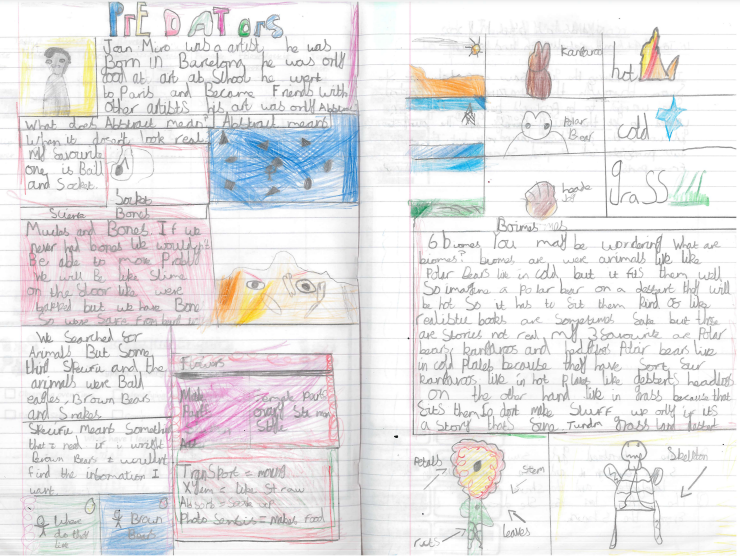 PrEDAtors
Joan Miro was a artist he was
Born in Barcelona he was only
good at art at School he went
to Paris and Became Friends with
other artists his art was only Abstract
What does Abstract mean? Abstract means
When it doesnt look real
My favourite
one is Ball
and Socket.
Socket
Science Bones
Muscles and Bones. If we
never had bones we wouldnt
Be able to move
We will Be like Slime
on the floor like we were
but we have Bone
So we
We Searched for
Animals But Some
and the
animals were Bald
eagles, Brown Bears
and Snakes
means Something
that I need if i
Brown Bears I
find the information I
want.
Brown
Flowers
Make
Female Parts
Style
Transport = moving
Xylem = like Straw
Absorb = Soak up
Photo = makes food
Kangaroo
hot
Polar
Bear
cold
grass
Boimes
6 biomes You may be wondering What are
biomes? biomes are were animals like
Polar Bears live in cold but it fits them well
So imagine a Polar bear on a dessert that will
be hot So it has to fit them kind of like
realistic books are Sometimes but these
are Stories not real my 3 favourite are Polar
bears kangaroos and Polar bears live
in cold Places because they have Fur
kangaroos like in hot Places like desserts
on the other hand live in grass because that
fits them So dont make Stuff up only if its
a Story thats Tundra grass land dessert
Petals
Stem
leaves
Skeliton